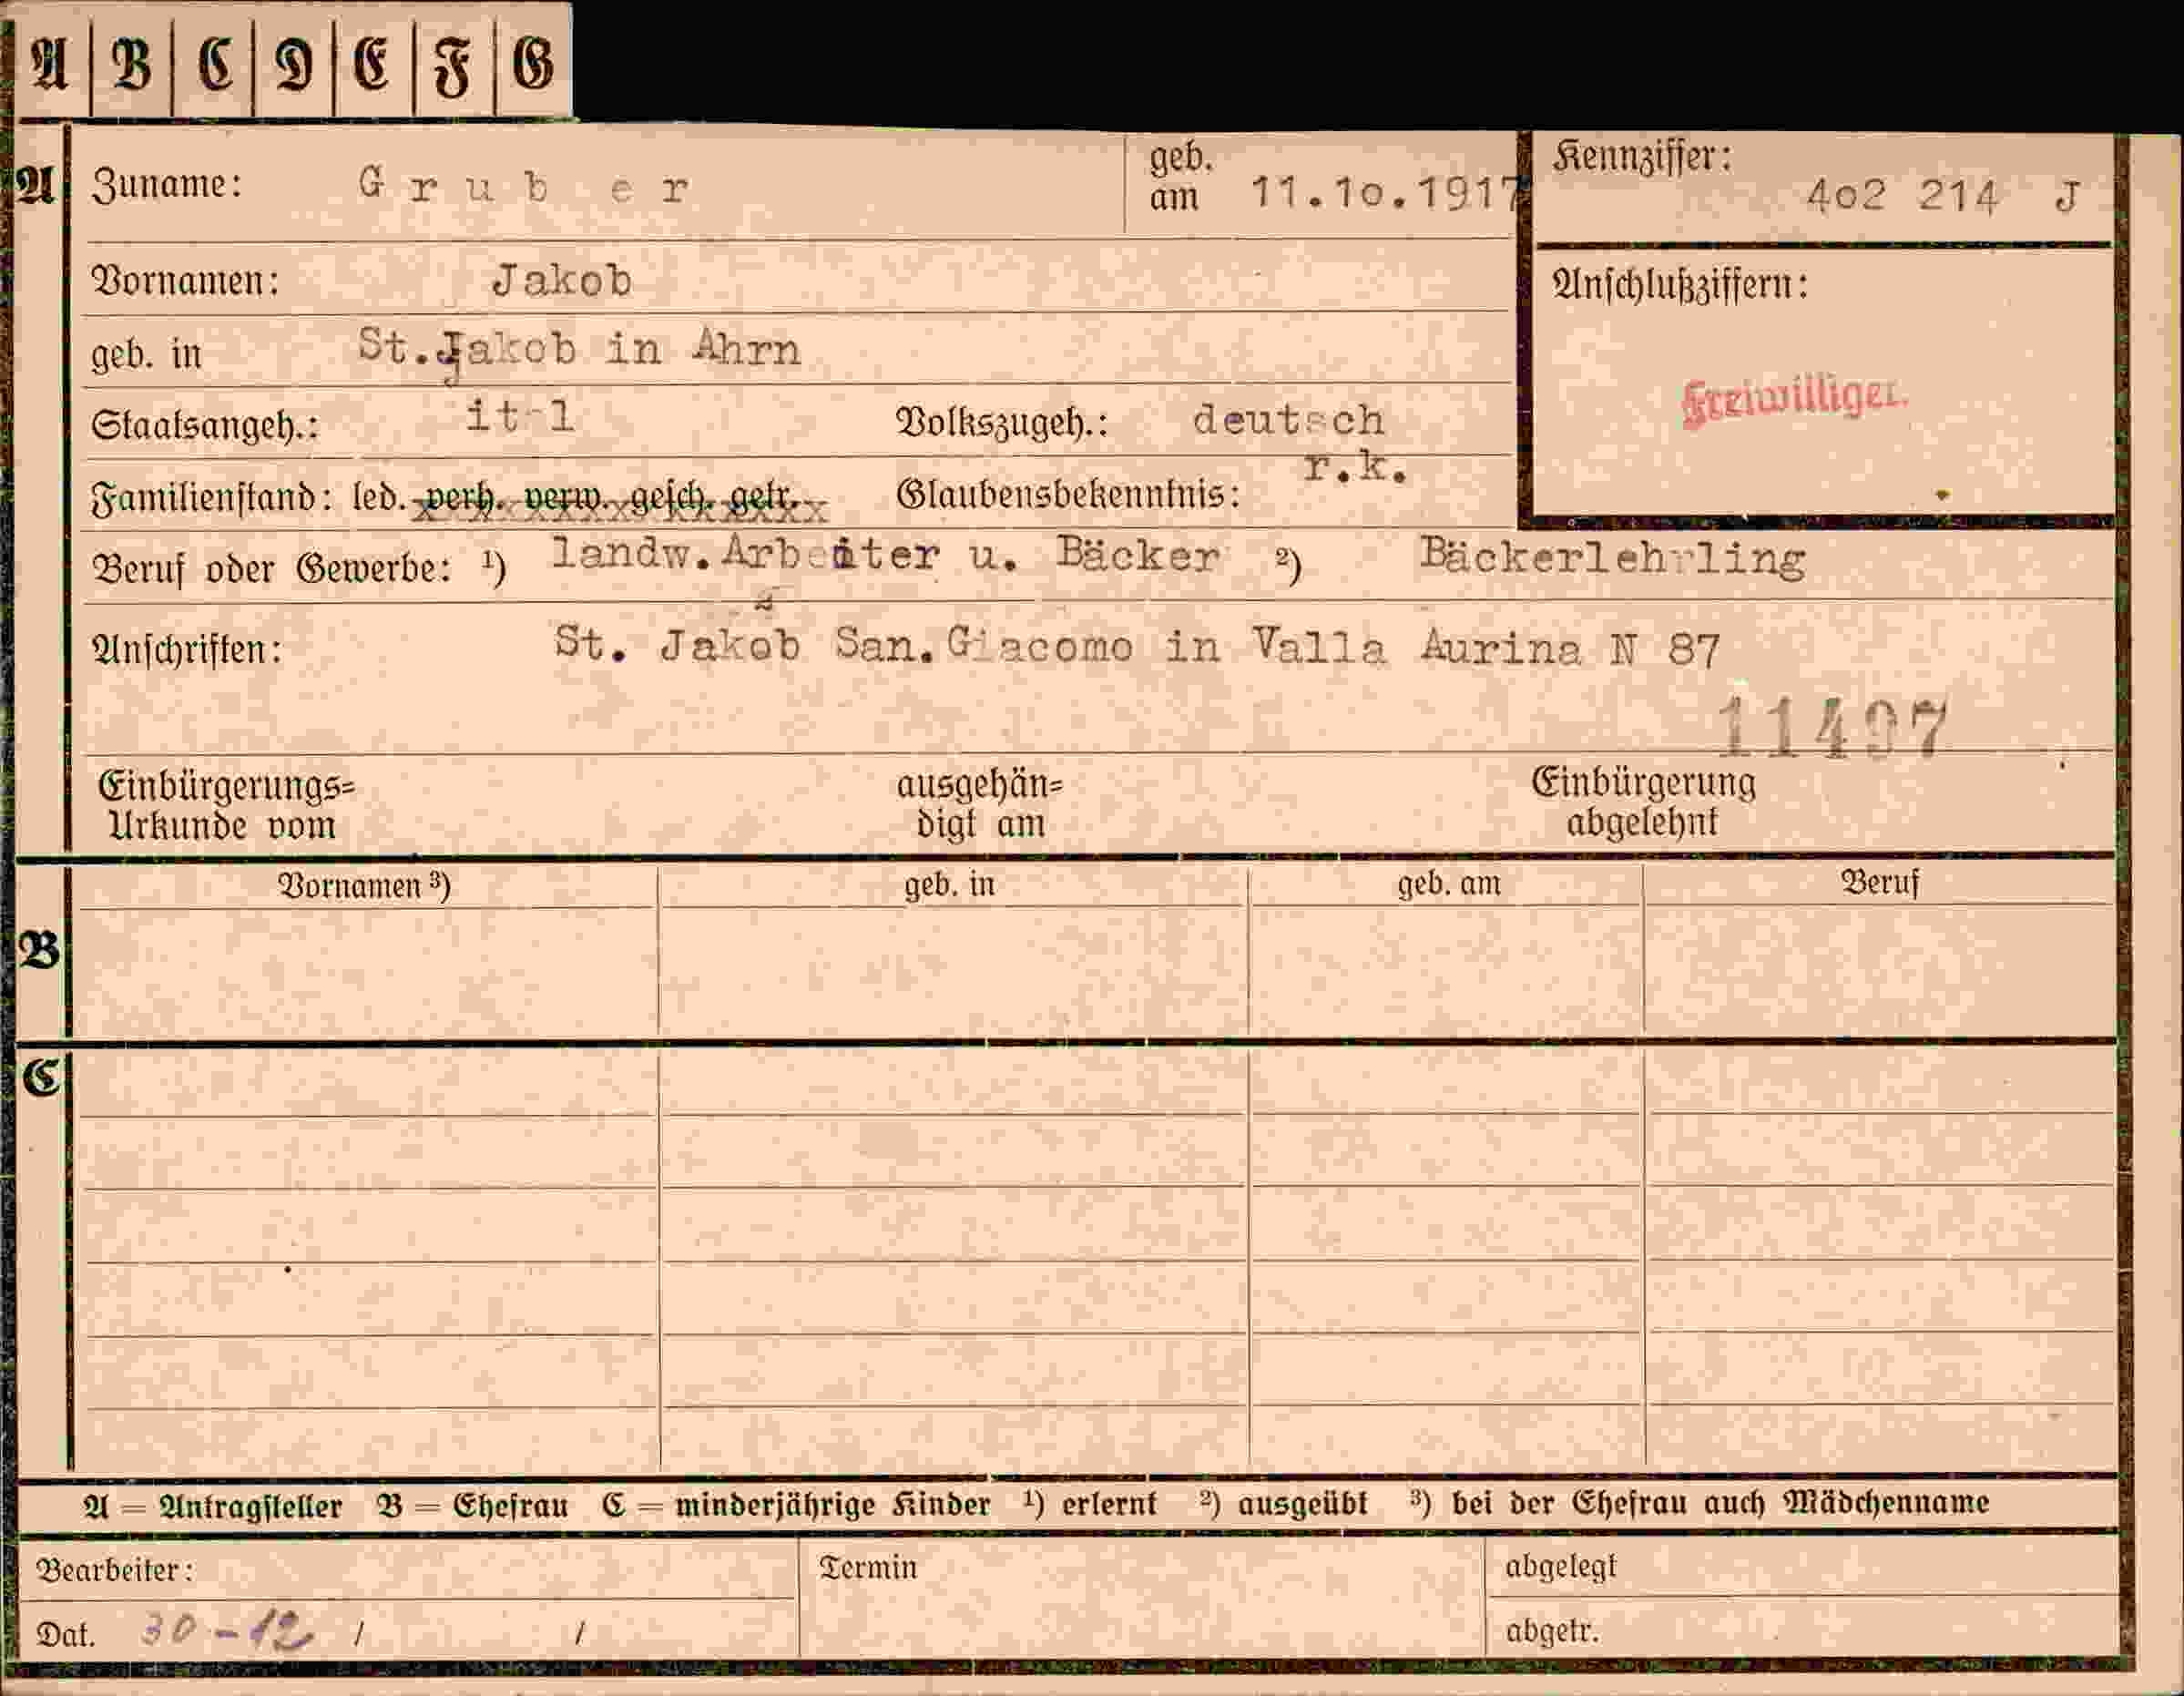 A B C D E F G
A Zuname: G r u b e r geb. am 11.1o.1917 Kennziffer: 4o2 214 J
Vornamen: Jakob Anschlußziffern:
geb. in St.Jakob in Ahrn
Freiwilliger.
Staatsangeh.: Volkszugeh.: deutsch
Familienstand: led. verh. verw. gesch. getr. Glaubensbekenntnis: r.k.
Beruf oder Gewerbe: ¹) landw.Arbeiter u. Bäcker ²) Bäckerlehrling
Anschriften: St. Jakob San.Giacomo in Valla Aurina N 87
11497
Einbürgerungs= ausgehän= Einbürgerung
Urkunde vom digt am abgelehnt
Vornamen ³) geb. in geb. am Beruf
B
C
A = Antragsteller B = Ehefrau C = minderjährige Kinder ¹) erlernt ²) ausgeübt ³) bei der Ehefrau auch Mädchenname
Bearbeiter: Termin abgelegt
Dat. 30-12 / / abgetr.